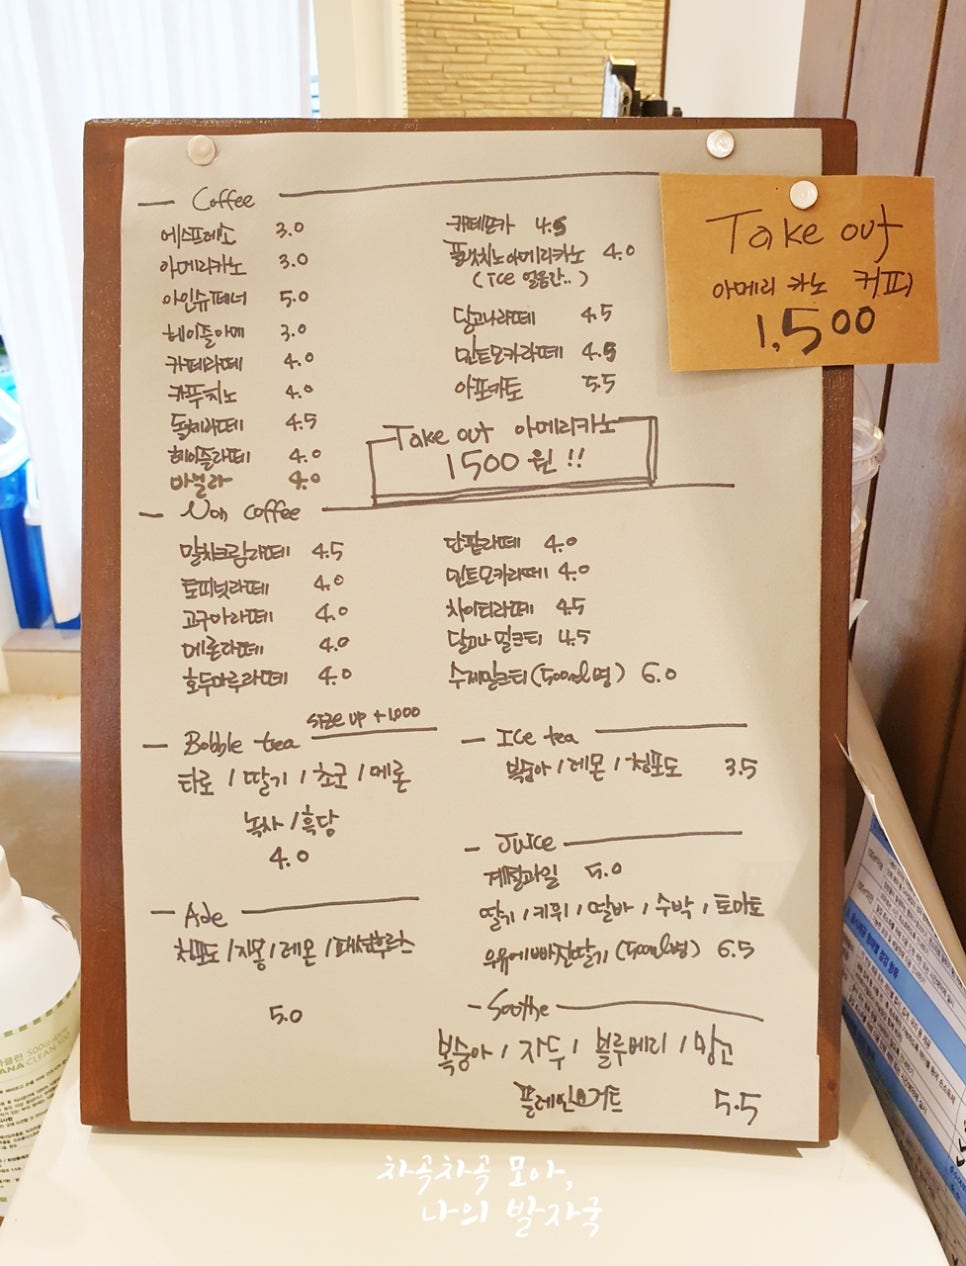 Coffee
에스프레소 3.0
아메리카노 3.0
아인슈페너 5.0
헤이즐아메 3.0
카페라떼 4.0
카푸치노 4.0
돌체라떼 4.5
헤이즐라떼 4.0
바닐라 4.0
카페모카 4.5
플랫치노아메리카노 4.0
(ice 얼음간..)
달고나라떼 4.5
민트모카라떼 4.5
아포카토 5.5
Take out 아메리카노
1500원!!
Take out
아메리카노 커피
1,500
Non coffee
말차크림라떼 4.5
토피넛라떼 4.0
고구마라떼 4.0
메론라떼 4.0
호두마루라떼 4.0
단팥라떼 4.0
민트모카라떼 4.0
차이티라떼 4.5
달고나밀크티 4.5
수제밀크티(500ml병) 6.0
Bobble tea size up +1,000
타로 / 딸기 / 초코 / 메론
녹차 / 흑당
4.0
Ice tea
복숭아 / 레몬 / 청포도 3.5
Juice
계절과일 5.0
딸기 / 키위 / 딸바 / 수박 / 토마토
우유에빠진딸기(500ml병) 6.5
Ade
청포도 / 자몽 / 레몬 / 패션후르츠
5.0
Soothe
복숭아 / 자두 / 블루베리 / 망고
플레인요거트 5.5
차곡차곡 모아,
나의 발자국